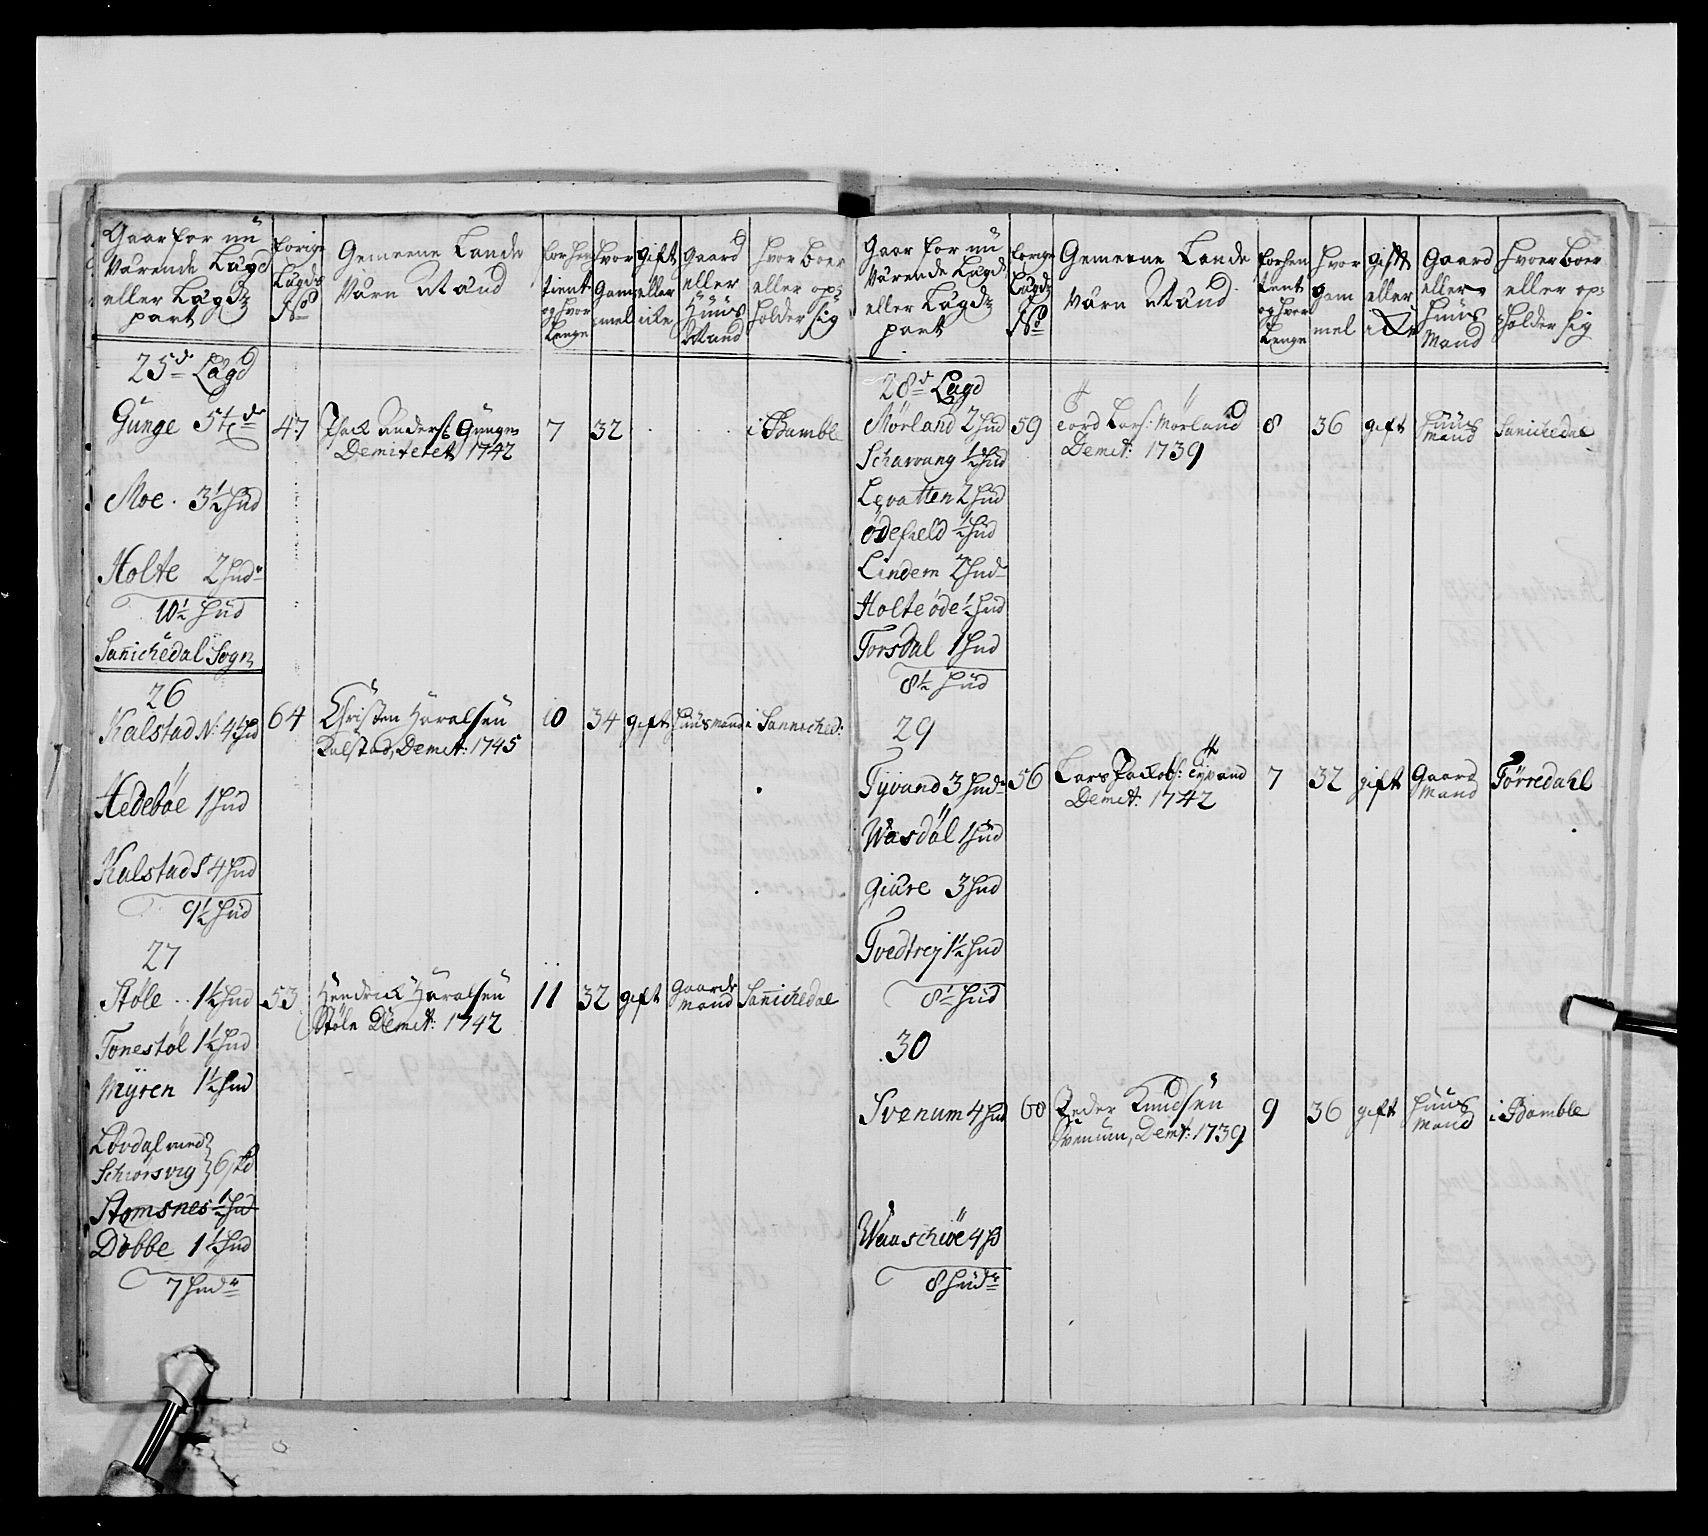 Gaar for nu
værende Lægd
eller Lægdz
part
forige
Lægds
No
Gemeene Lande
værn Mand
forhen
tient
og hvor
Lenge
hvor
Gam
mel
gift
eller
icke
Gaard
eller
Huus
Mand
hvor boer
eller op:
holder sig
25de Lægd
Gunge 5 td
47
Isack Anders: Gunge
Demiteret 1742
7
32
i Bamble
Moe 3½ hud
Holte 2 hude
10½ hud
Sanichedal Sogn
26
Kalstad N: 4½ hud
64
Christen Haralsen
Kalstad, Demit: 1745
10
34
gift
huusmand
i Sannched:
Hedebøe 1 hud
Kalstad S 4 hud
9½ hud
27
Støle 1½ hud
53
Hendrick Haralsen
Støle Demit: 1742
11
32
gift
Gaard
Mand
Sanichedal
Tonestøl 1½ hud
Myren 1½ hud
Løvdal med
Schiørsvig
Stomsnes ½ hud
Dobbe 1½ hud
7 hude
Gaar for nu
værende Lægd
eller Lægdz
part
forige
Lægdz
No
Gemeene Lande
værn Mand
forhen
tient
og hvor
Lenge
hvor
gam
mel
gift
eller
icke
Gaard
eller
huus
Mand
hvoer boer
eller op:
holder sig
28d Lægd
Mørland 2 hud
59
Tord Lars: Mørland
Demit: 1739
8
36
gift
huus
Mand
Sanichedal
Scharvang ½ hud
Lqvatten 2 hud
Ødefield ½ hud
Lindem 2 hud
Holte øde ½ hud
Torsdal 1 hud
8½ hud
29
Tyvand 3 hud
56
Lars Jackobs: Tyvand
Demit: 1742
7
32
gift
Gaard
Mand
Tørredahl
Wasdal 1 hud
Giure 3 hud
Tvedtrej 1½ hud
8½ hud
30
Svenum 4 hud
60
Peder Knudsen
Svenum, Demt: 1739
9
36
gift
huus
Mand
i Bamble
Waaschiøe 4 h
8 hude